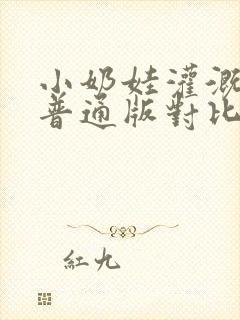 小奶娃灌溉
普通版對比
紅九